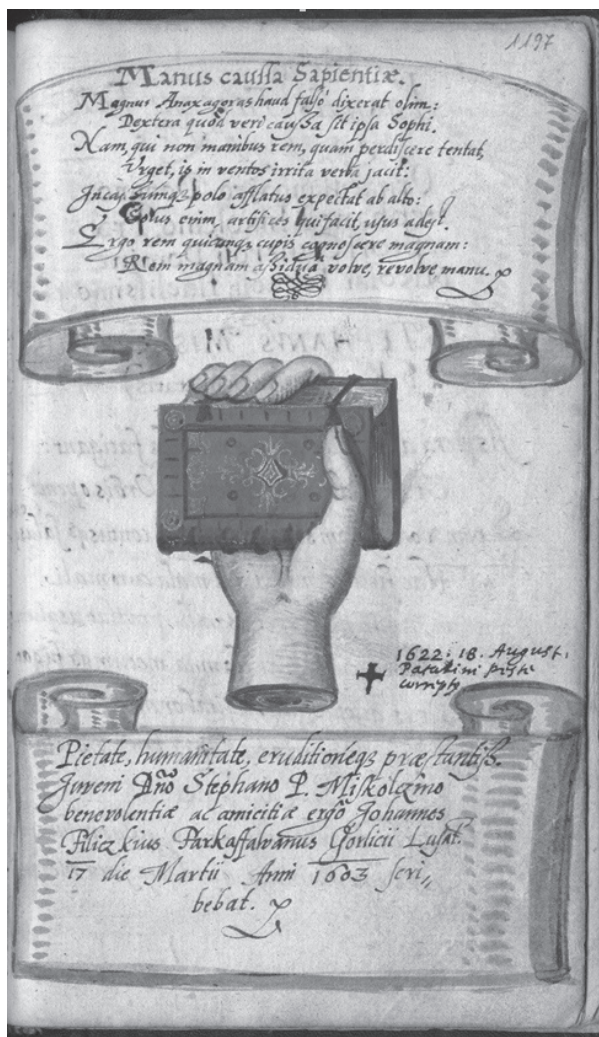 1197
Manus caussa Sapientiæ.
Magnus Anaxagoras haud falsò dixerat olim:
Dextera quòd veri caussa sit ipsa Sophi.
Nam, qui non manibus rem, quam perdiscere tentat,
Urget, is in ventos irrita verba jacit:
polo afflatus expectat ab alto:
Solus enim, artifices qui facit, usus adest.
Ergo rem quicunqꝫ cupis cognoscere magnam:
Rem magnam assiduâ volve, revolve manu.
1622. 18. August.
Patakini peste
Pietate, humanitate, eruditioneqꝫ præstantiss.
Juveni Dño Stephano P. Miskolczino
benevolentiæ ac amicitiæ ergò Johannes
Filiczkius Farkaffalvanus Gorlicii Lusat.
17 die Martii Anni 1603 scri„
bebat.